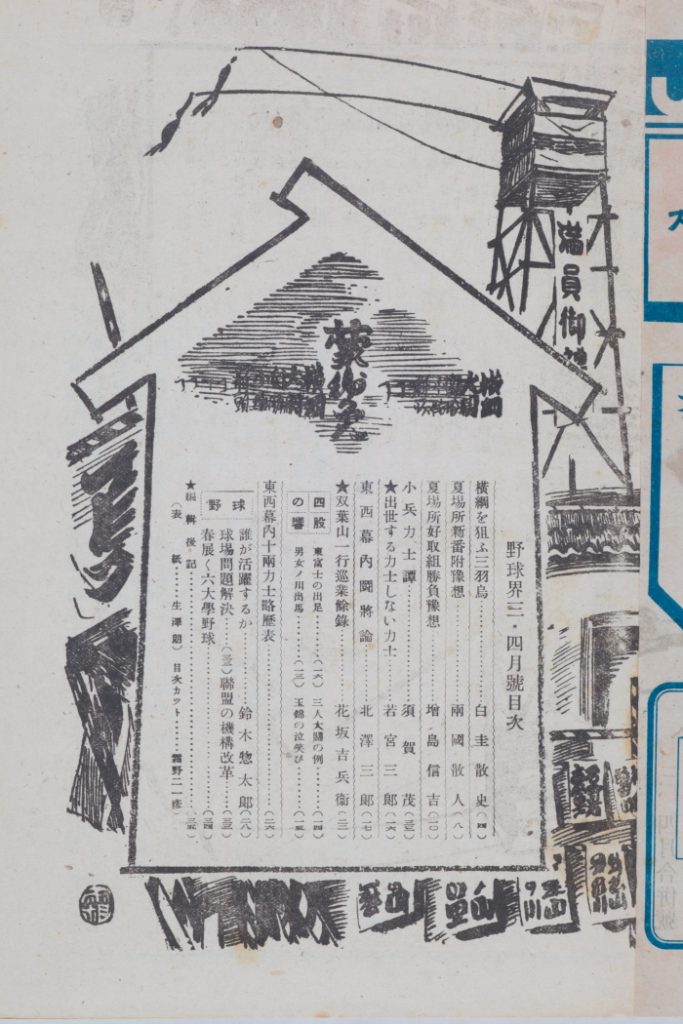 満員御
横綱
大関
横綱
大関
野球界三・四月號目次
横綱を狙ふ三羽烏……白圭散史(四)
夏場所新番附豫想……兩國散人(八)
夏場所好取組勝負豫想……增島信吉(一〇)
小兵力士譚……須賀茂
★出世する力士しない力士……若宮三郎(一六)
東西幕內鬪將論……北澤三郎(一七)
★双葉山一行巡業餘錄……花坂吉兵衞(二二)
四股の響
東富士の出足……(一六)三人大關の例……(一四)
男女ノ川出馬……(一三)玉錦の泣笑ひ……(一五)
東西幕內十兩力士略歷表……(二六)
野球
誰が活躍するか……鈴木惣太郎(二八)
球場問題解決……(三三)聯盟の機構改革……(三三)
春展く六大學野球……(三四)
★編輯後記……(三五)
(表紙……生澤朗)目次カット……霜野二一彥